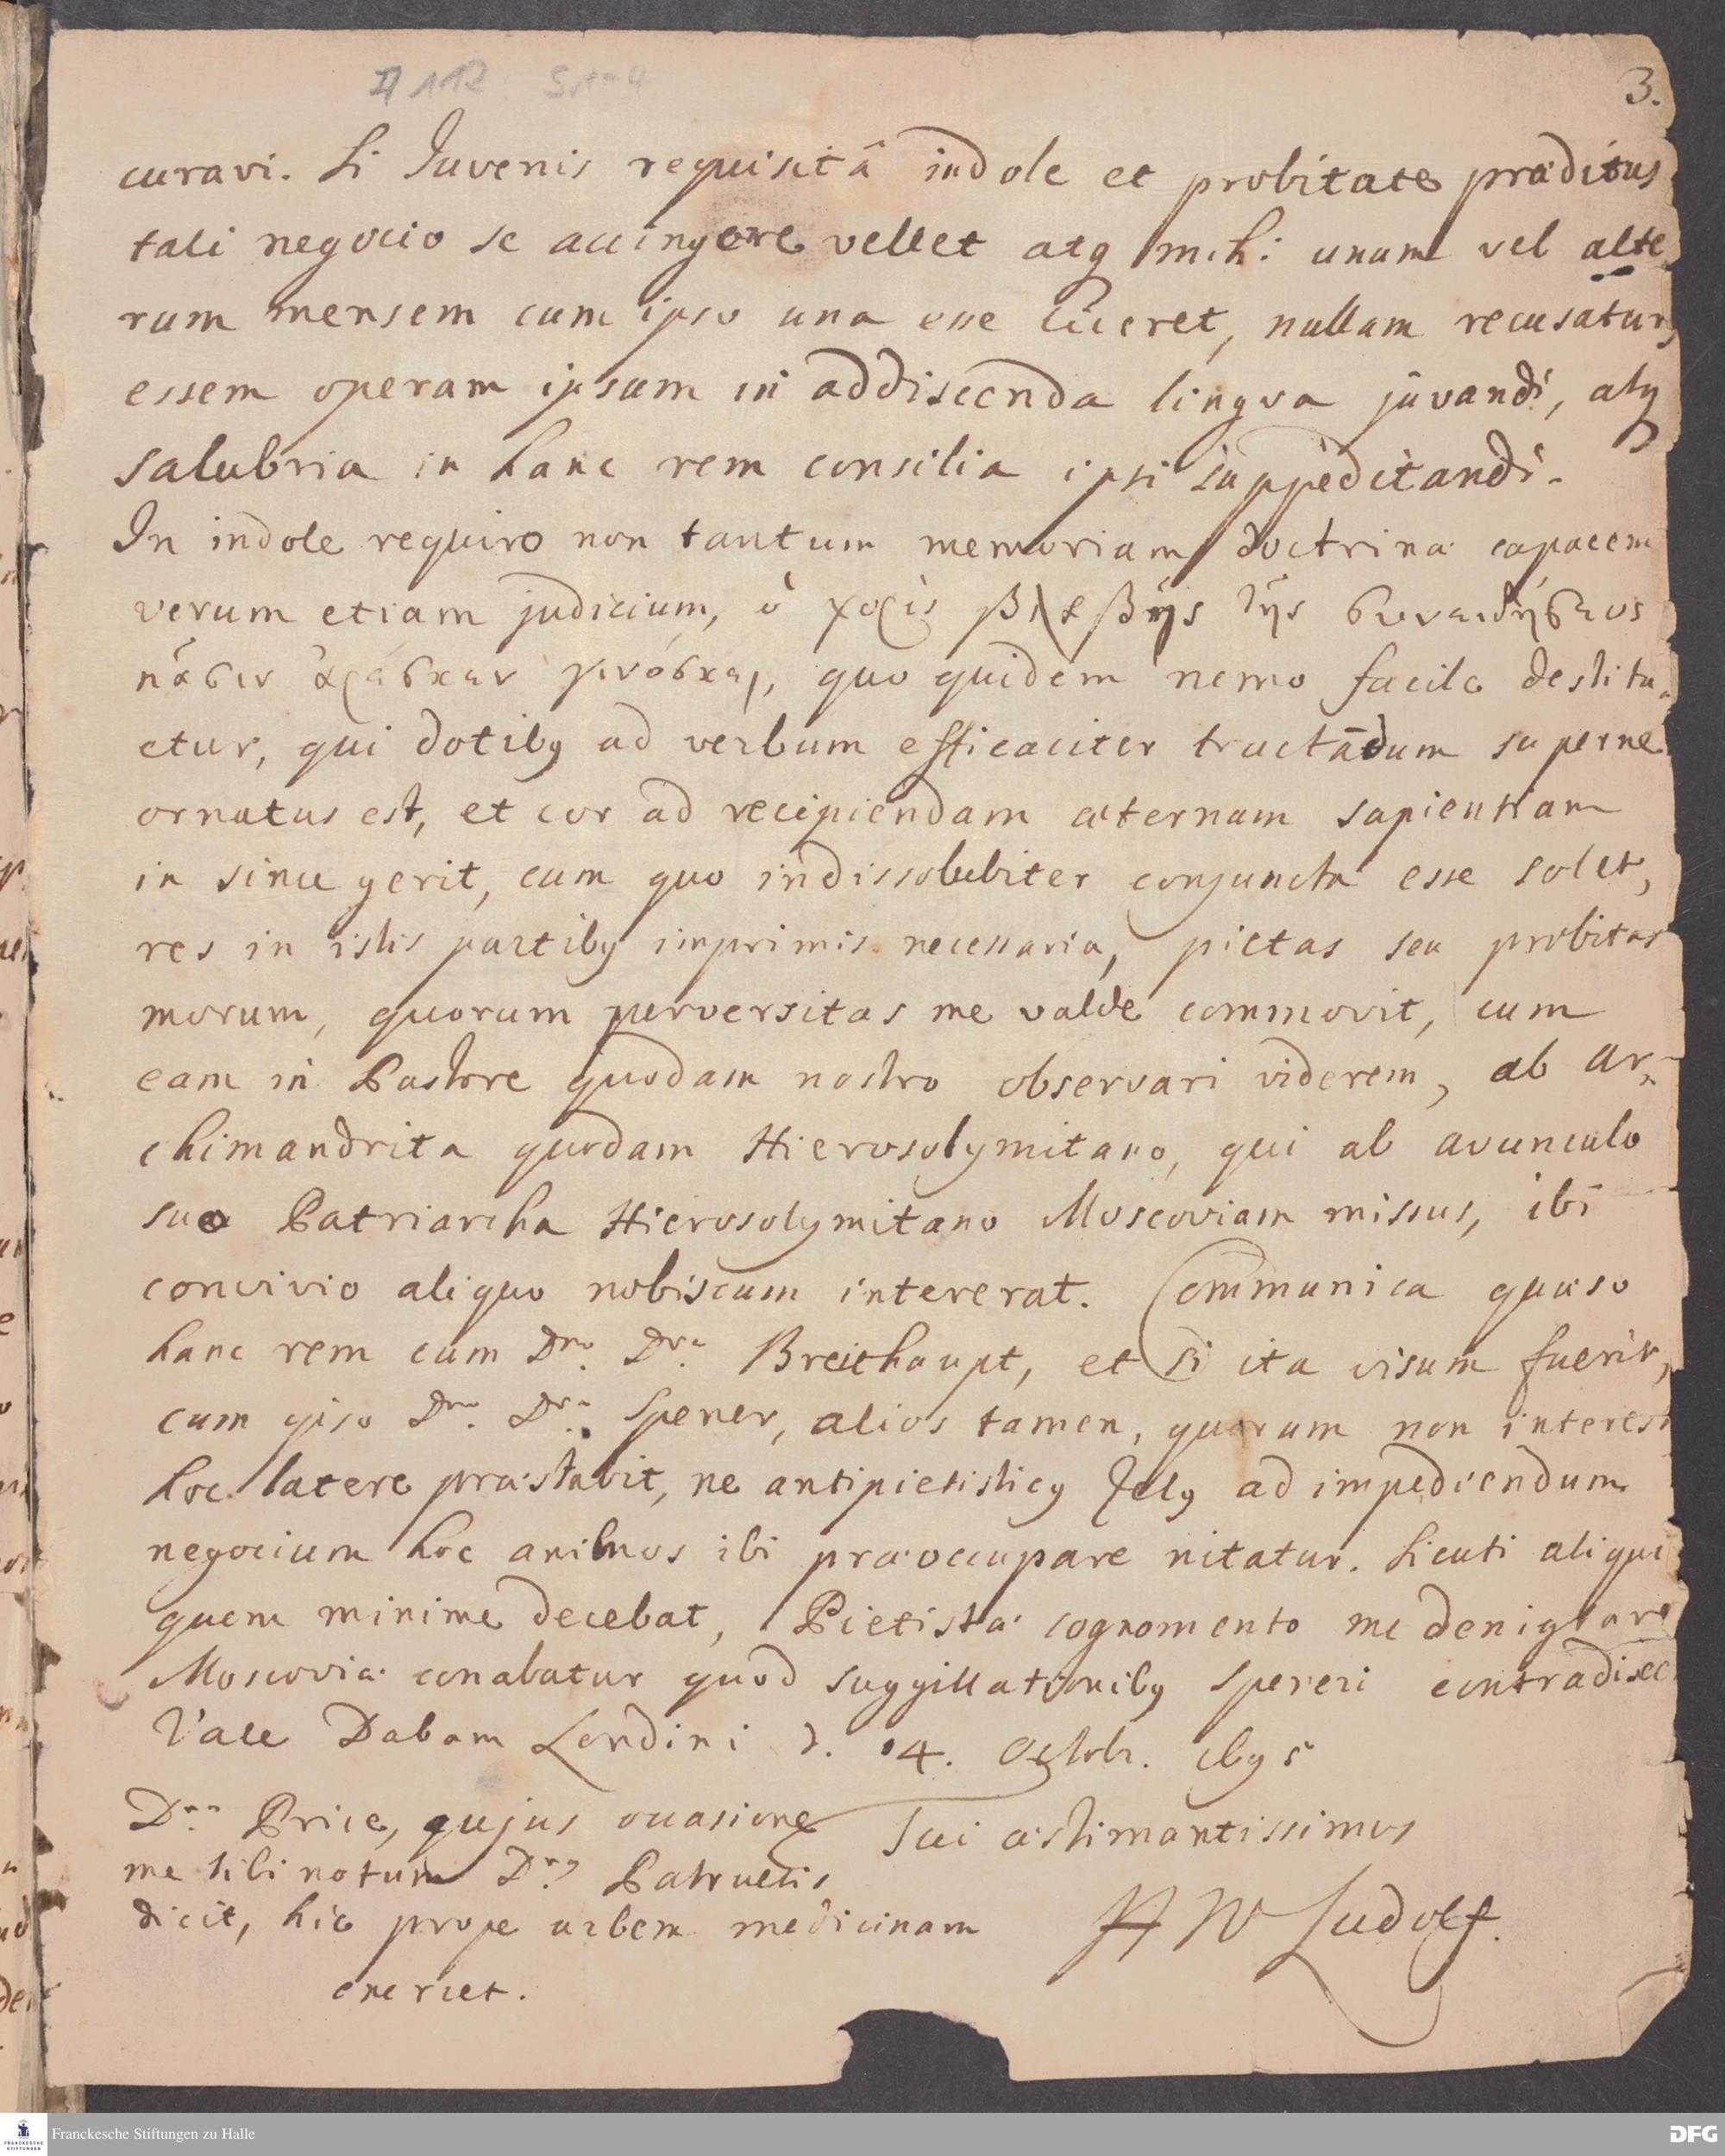 3.
curavi. Si Juvenis requisitâ indole et probitate præditus
tali negocio se accingere vellet atq mihi unum vel alte
rum mensem cum ipso una esse liceret, nullam recusaturus
essem operam ipsum in addiscenda lingva jûvandi, atq
salubria in hanc rem consilia ipsi suppeditandi.
In indole requiro non tantum memoriam doctrinæ capacem
verum etiam judicium, ὁ χωρὶς τῆς
πᾶσιν ἀρέσκειν quo quidem nemo facile destitu-
etur, qui dotibq ad verbum efficaciter tractādum superne
ornatus est, et cor ad recipiendam æternam sapientiam
in sinu gerit, cum quo indissolubiter conjuncta esse solet,
res in istis partibq imprimis necessaria, pietas seu probitas
morum, quorum perversitas me valde commovit, cum
eam in Pastore quodam nostro observari viderem, ab Ar-
chimandrita quodam Hierosolymitano, qui ab avunculo
suo Patriarcha Hierosolymitano Moscoviam missus, ibi
convivio aliquo nobiscum intererat. Communica quæso
hanc rem cum Dno. Dre. Breithaupt, et si ita visum fuerit,
cum ipso Dno. Dre. Spener, alios tamen, quorum non interest
hoc latere præstabit, ne antipietisticq Zelq ad impediendum
negocium hoc animos ibi præoccupare nitatur. Sicuti aliqui
quem minime decebat, Pietistæ cognomento me denigrare
Moscoviæ conabatur quod suggillationibq Speneri contradixe
Vale Dabam Londini d. 14. Octobr.
Dnn Price, qujus occasione Tui æstimantissimus
me tibi notum Dnq
dicit, hic prope urbem medicinam HW Ludolf.
exercet.
Franckesche Stiftungen zu Halle
DFG